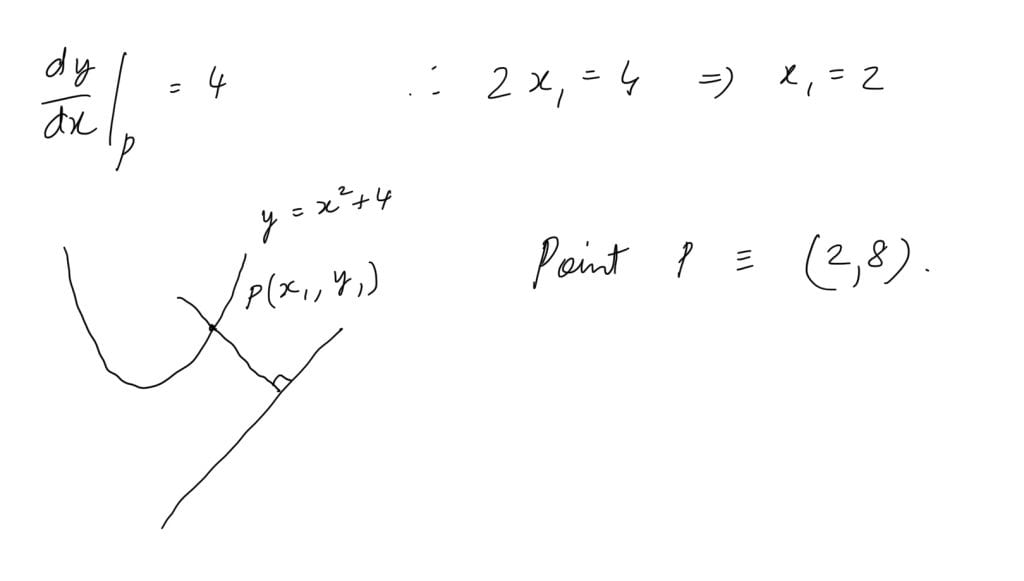 dy/dx|p = 4 ∴ 2x₁ = 4 ⇒ x₁ = 2
y = x² + 4
P(x₁, y₁)
Point P ≡ (2,8).